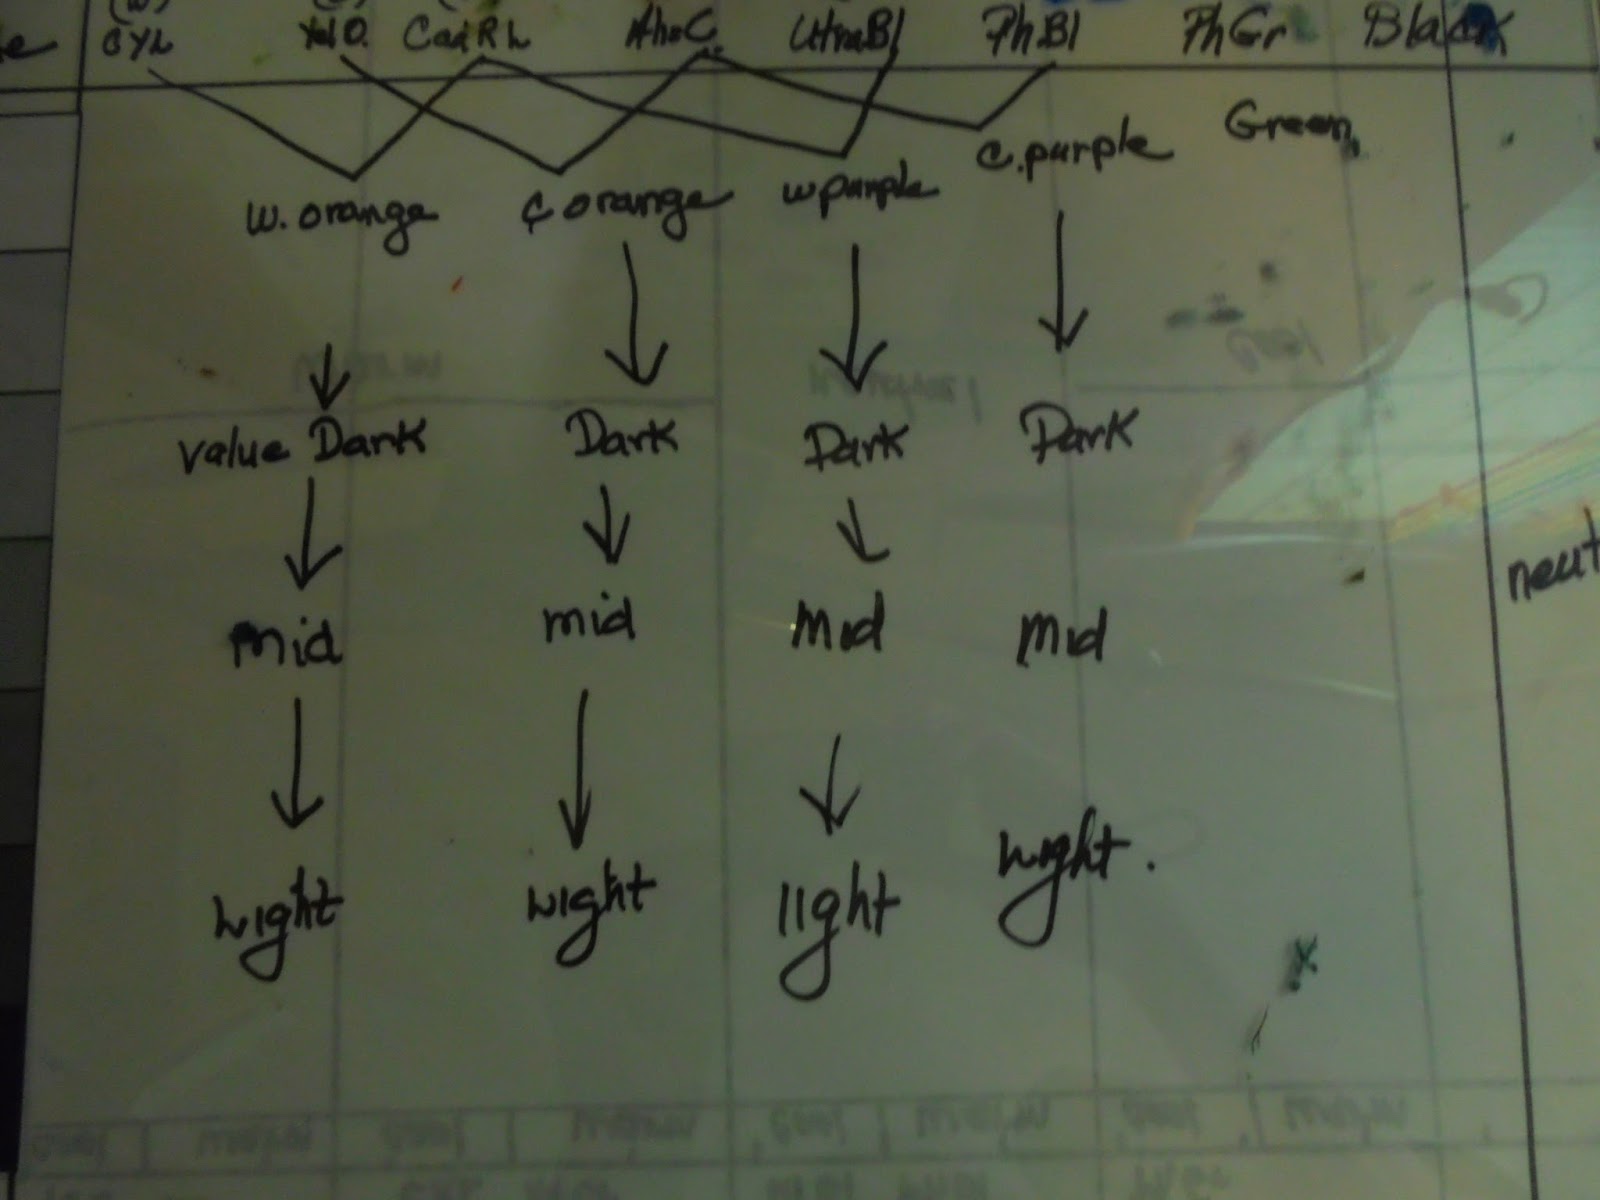 CYL Yel O. Cad R L Ahz C UltraBl Ph.Bl PhGr Black
w. orange c orange w purple c. purple Green
value Dark Dark Dark Dark
mid mid Mid Mid
neut
Light Light light Light.